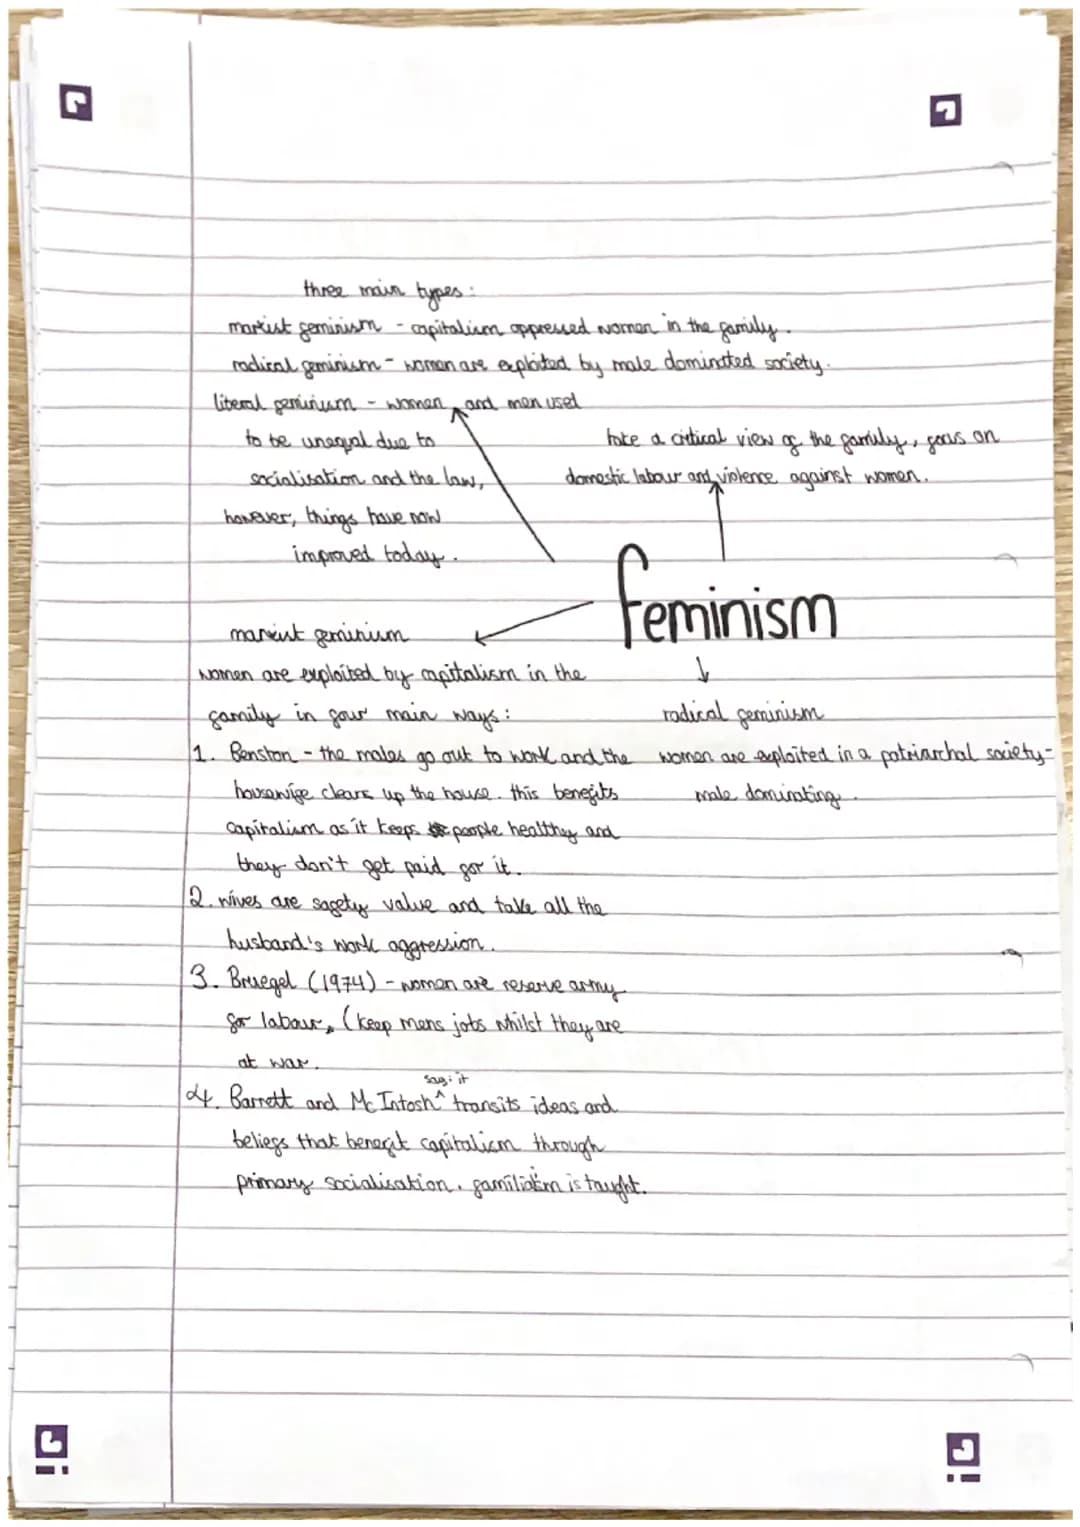 three main types:
marxist feminism - capitalism oppressed women in the family.
radical feminism - women are exploited by male dominated society.
liberal feminism - women and men used
to be unequal due to
socialisation and the law,
however, things have now
improved today.
take a critical view of the family, focus on
domestic labour and violence against women.
feminism
marxist feminism
women are exploited by capitalism in the
family in four main ways:
1. Benston - the males go out to work and the
housewife clears up the house. this benefits
capitalism as it keeps people healthy and
they don't get paid for it.
2. wives are safety value and take all the
husband's work aggression.
3. Bruegel (1974) - women are reserve army
for labour, (keep mens jobs whilst they are
at war.
4. Barrett and McIntosh ^ say: it transits ideas and
beliefs that benefit capitalism through
primary socialisation. familialism is taught.
radical feminism
women are exploited in a patriarchal society-
male dominating.